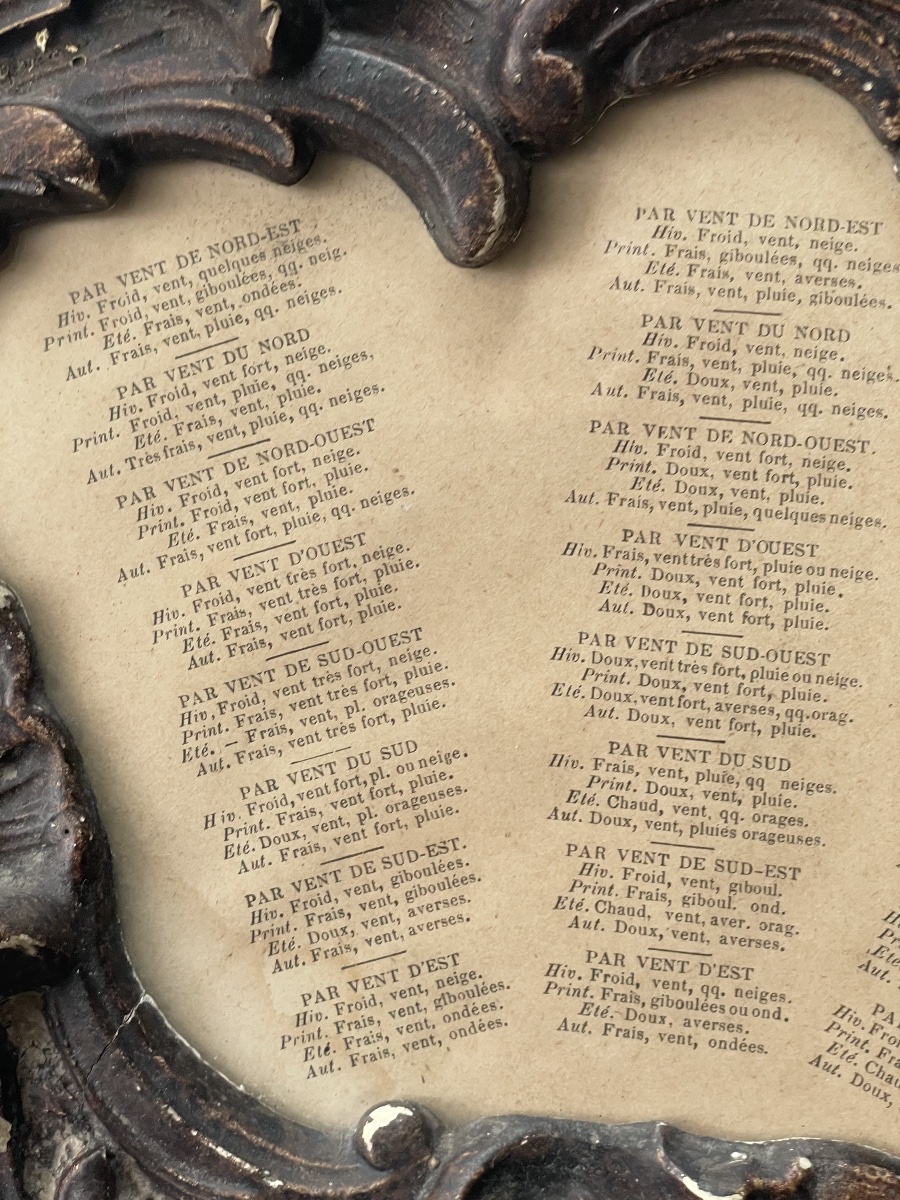 PAR VENT DE NORD-EST
Hiv. Froid, vent, quelques neiges.
Print. Froid, vent, giboulées, qq. neig.
Eté. Frais, vent, ondées.
Aut. Frais, vent, pluie, qq. neiges.
PAR VENT DU NORD
Hiv. Froid, vent fort, neige.
Print. Froid, vent, pluie, qq. neiges,
Eté. Frais, vent, pluie.
Aut. Très frais, vent, pluie, qq. neiges.
PAR VENT DE NORD-OUEST
Hiv. Froid, vent fort, neige.
Print. Froid, vent fort, pluie.
Eté. Frais, vent, pluie.
Aut. Frais, vent fort, pluie, qq. neiges.
PAR VENT D'OUEST
Hiv. Froid, vent très fort, neige.
Print. Frais, vent très fort, pluie.
Eté. Frais, vent fort, pluie.
Aut. Frais, vent fort, pluie.
PAR VENT DE SUD-OUEST
Hiv. Froid, vent très fort, neige.
Print. Frais, vent très fort, pluie.
Eté. — Frais, vent, pl. orageuses.
Aut. Frais, vent très fort, pluie.
PAR VENT DU SUD
Hiv. Froid, vent fort, pl. ou neige.
Print. Frais, vent fort, pluie.
Eté. Doux, vent, pl. orageuses.
Aut. Frais, vent fort, pluie.
PAR VENT DE SUD-EST.
Hiv. Froid, vent, giboulées.
Print. Frais, vent, giboulées.
Eté. Doux, vent, averses.
Aut. Frais, vent, averses.
PAR VENT D'EST
Hiv. Froid, vent, neige.
Print. Frais, vent, giboulées.
Eté. Frais, vent, ondées.
Aut. Frais, vent, ondées.
PAR VENT DE NORD-EST
Hiv. Froid, vent, neige.
Print. Frais, giboulées, qq. neiges
Eté. Frais, vent, averses.
Aut. Frais, vent, pluie, giboulées.
PAR VENT DU NORD
Hiv. Froid, vent, neige.
Print. Frais, vent, pluie, qq. neiges.
Eté. Doux, vent, pluie.
Aut. Frais, vent, pluie, qq. neiges.
PAR VENT DE NORD-OUEST.
Hiv. Froid, vent fort, neige.
Print. Doux, vent fort, pluie.
Eté. Doux, vent, pluie.
Aut. Frais, vent, pluie, quelques neiges.
PAR VENT D'OUEST
Hiv. Frais, vent très fort, pluie ou neige.
Print. Doux, vent fort, pluie.
Eté. Doux, vent fort, pluie.
Aut. Doux, vent fort, pluie.
PAR VENT DE SUD-OUEST
Hiv. Doux, vent très fort, pluie ou neige.
Print. Doux, vent fort, pluie.
Eté. Doux, vent fort, averses, qq. orag.
Aut. Doux, vent fort, pluie.
PAR VENT DU SUD
Hiv. Frais, vent, pluie, qq neiges.
Print. Doux, vent, pluie.
Eté. Chaud, vent, qq. orages.
Aut. Doux, vent, pluies orageuses.
PAR VENT DE SUD-EST
Hiv. Froid, vent, giboul.
Print. Frais, giboul. ond.
Eté. Chaud, vent, aver. orag.
Aut. Doux, vent, averses.
PAR VENT D'EST
Hiv. Froid, vent, qq. neiges.
Print. Frais, giboulées ou ond.
Eté. Doux, averses.
Aut. Frais, vent, ondées.
Eté
Aut.
Hiv. Fro
Print. Fra
Eté. Chau
Aut. Doux,